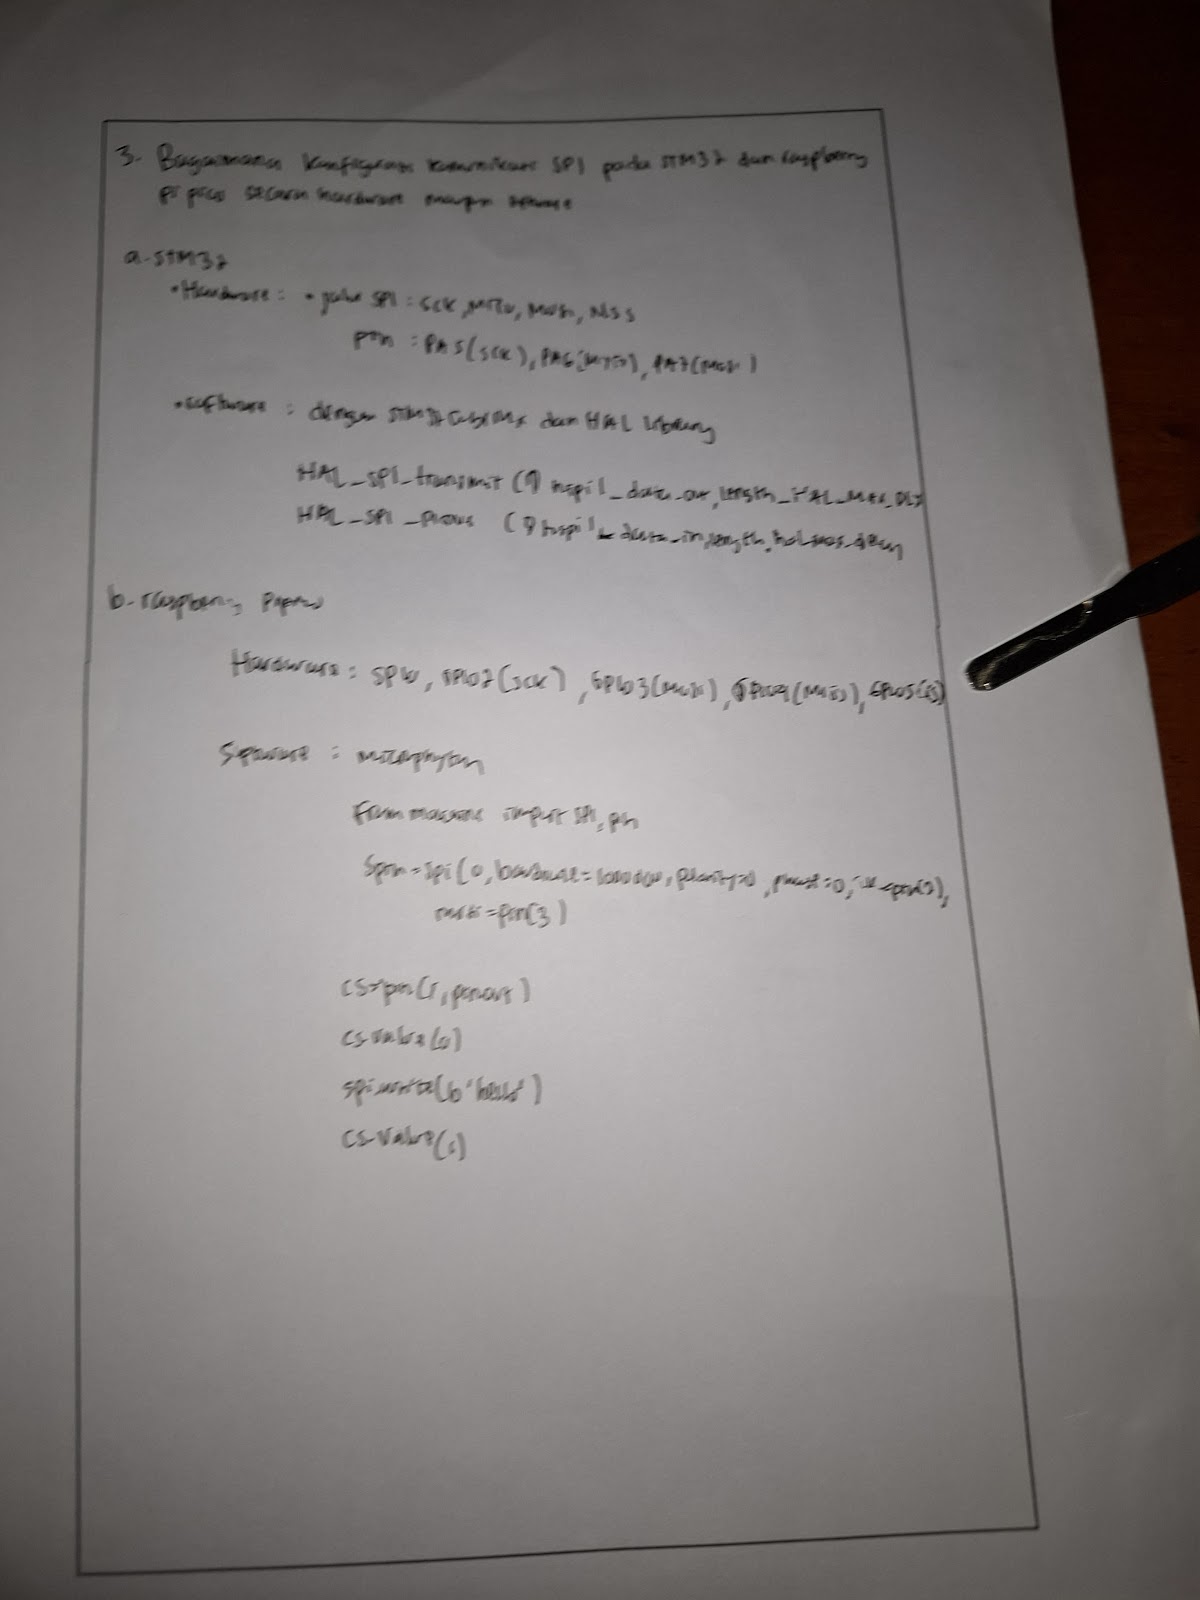 3. Bagaimana konfigurasi komunikasi SPI pada STM32 dan raspberry
pi pico secara hardware maupun software
a. STM32
• Hardware : • jalur SPI : SCK, MISO, MOSI, NSS
pin : PA5(SCK), PA6(MISO), PA7(MOSI)
• software : dengan STM32CubeMX dan HAL library
HAL_SPI_transmit ( hspi1_data_out, length_HAL_MAX_
HAL_SPI_ ( hspi1 data_in, length, hal_max_delay
b. raspberry
Hardware : , (SCK), GPIO3(MOSI), (MISO), GPIO5(CS)
: micropython
From machine import SPI, pin
= spi(0, baudrate= , polarity=0, phase=0, =pin(2),
mosi=pin(3)
cs=pin( , pinout)
cs value(0)
spi.write(b'hello')
cs-value(1)